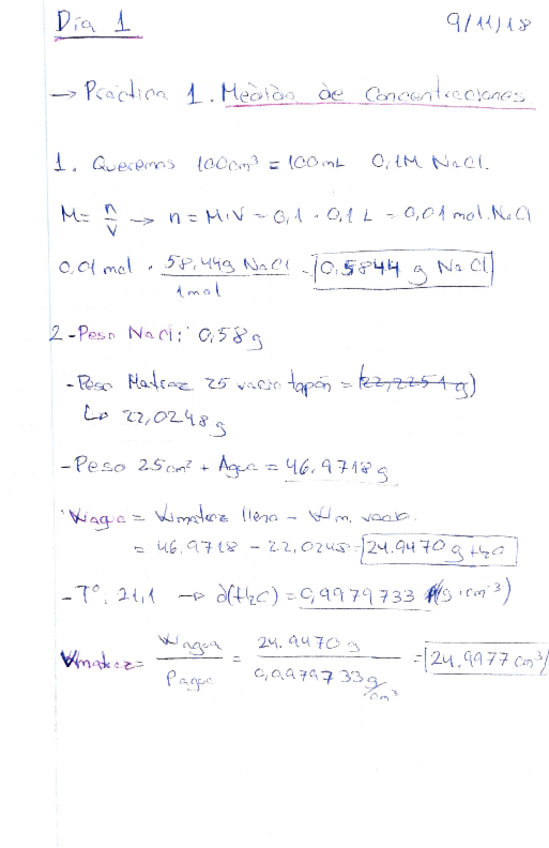 Día 1 9/11/18
→ Práctica 1. Medición de Concentraciones
1. Queremos 100cm³ = 100mL 0,1M NaCl.
M = n/V → n = M·V = 0,1 · 0,1 L = 0,01 mol NaCl
0,01 mol · 58,44g NaCl / 1mol = 0,5844 g NaCl
2 - Peso NaCl: 0,58g
- Peso Matraz 25 vacio tapón = (22,2251 g)
↳ 22,0248g
- Peso 25cm³ + Agua = 46,9718g
Wagua = Wmatraz lleno - Wm. vacio.
= 46,9718 - 22,0248 = 24,9470 g H₂O
- Tº: 21,1 → d(H₂O) = 0,9979733 (g·cm⁻³)
Vmatraz = Wagua / ρagua = 24,9470 g / 0,9979733 g/cm³ = 24,9977 cm³